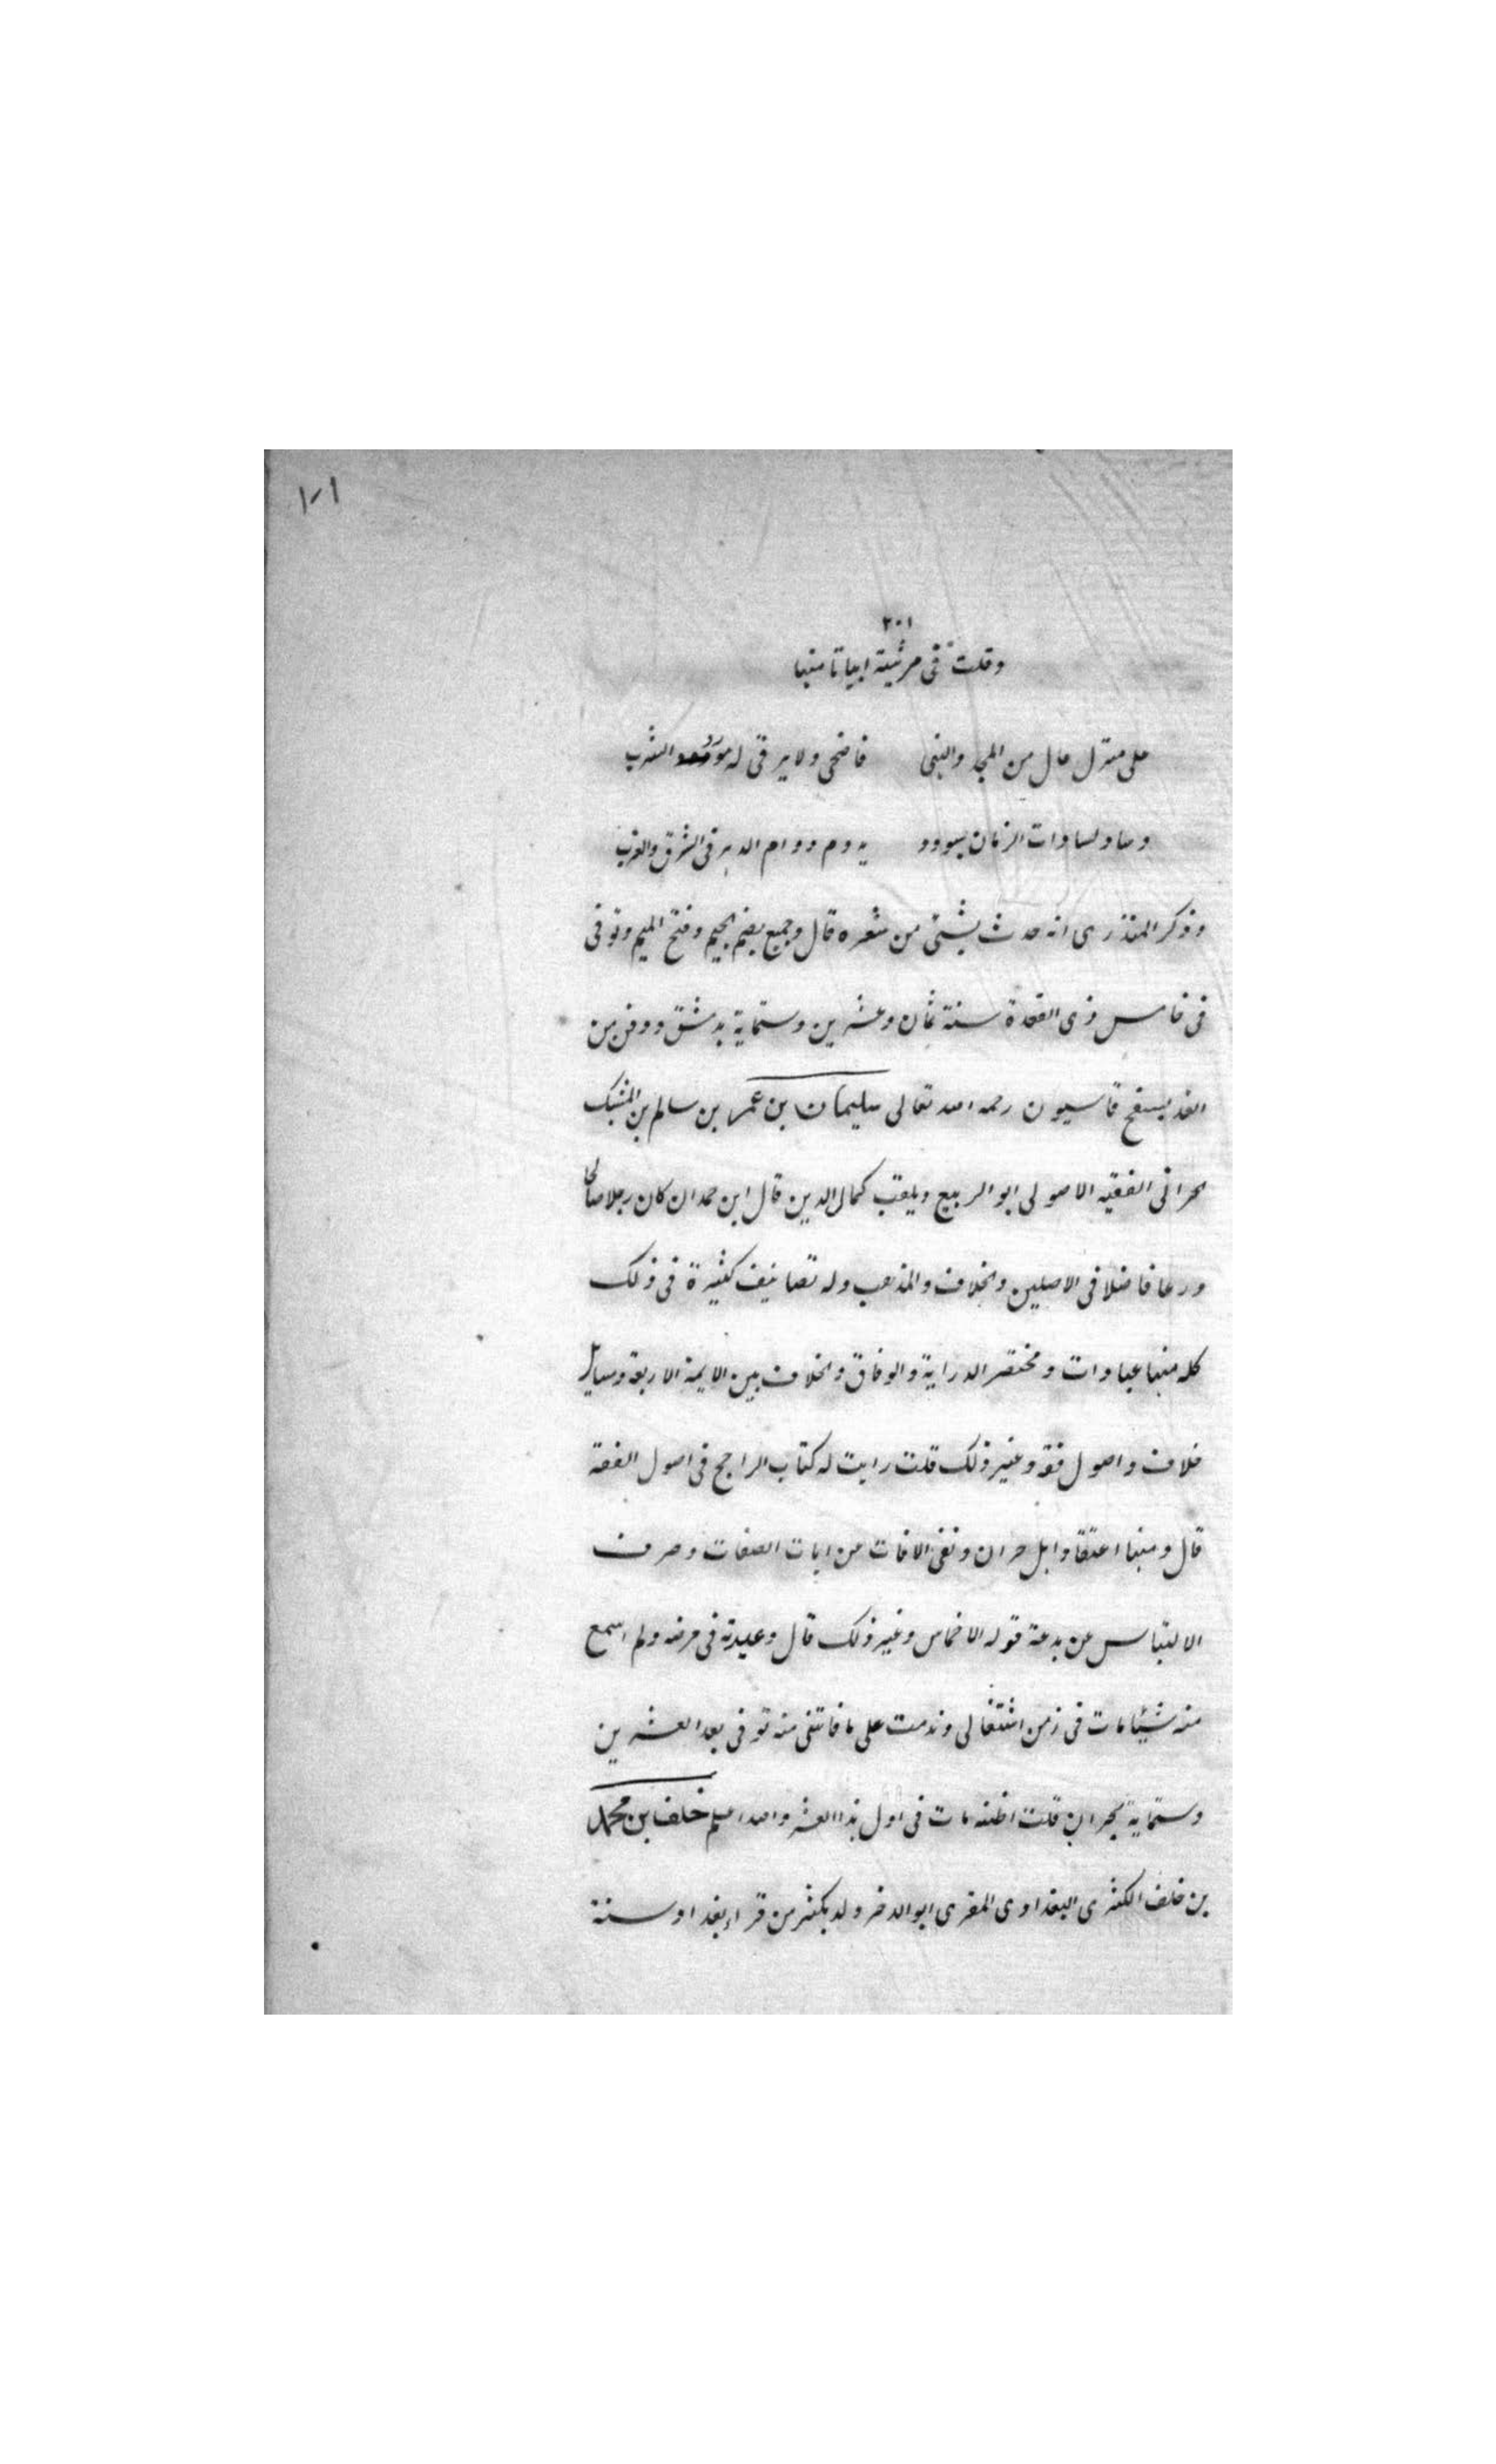 ١٠١
٢٠١
وقلت فى مرثية ابياتا منها
على منزل عال من المجد والبنى فاضحى ولا يرقى له الترب
وساد لسادات الزمان بسودد يدوم دوام الدهر فى الشرق والغرب
وذكر المنذرى انه حدث بشئ من شعره قال وجميع بضم الجيم وفتح الميم وتوفى
فى خامس ذى القعدة سنة ثمان وعشرين وستماية بدمشق ودفن من
الغد بسفح قاسيون رحمه الله تعالى سليمان بن عمر بن سالم بن المشبك
الحرانى الفقيه الاصولى ابو الربيع ويلقب كمال الدين قال ابن حمدان كان رجلا صالحا
ورعا فاضلا فى الاصلين والخلاف والمذهب وله تصانيف كثيرة فى ذلك
كله منها عبادات ومختصر الدراية والوفاق والخلاف بين الايمة الاربعة ومسايل
خلاف واصول فقه وغير ذلك قلت رايت له كتاب الراجح فى اصول الفقه
قال ومنها اعتقاد اهل حران ونفى الافات عن ايات الصفات وصرف
الالتباس عن بدعة قوله الاخماس وغير ذلك قال وعدته فى مرضه ولم اسمع
منه شيئا مات فى زمن اشتغالى وندمت على ما فاتنى منه توفى بعد العشرين
وستماية بحران قلت اظنه مات فى اول هذا العشر والله اعلم خلف بن محمد
بن خلف الكنرى البغدادى المقرى ابو الدخر ولد بكنر من قراء بغداد سنة